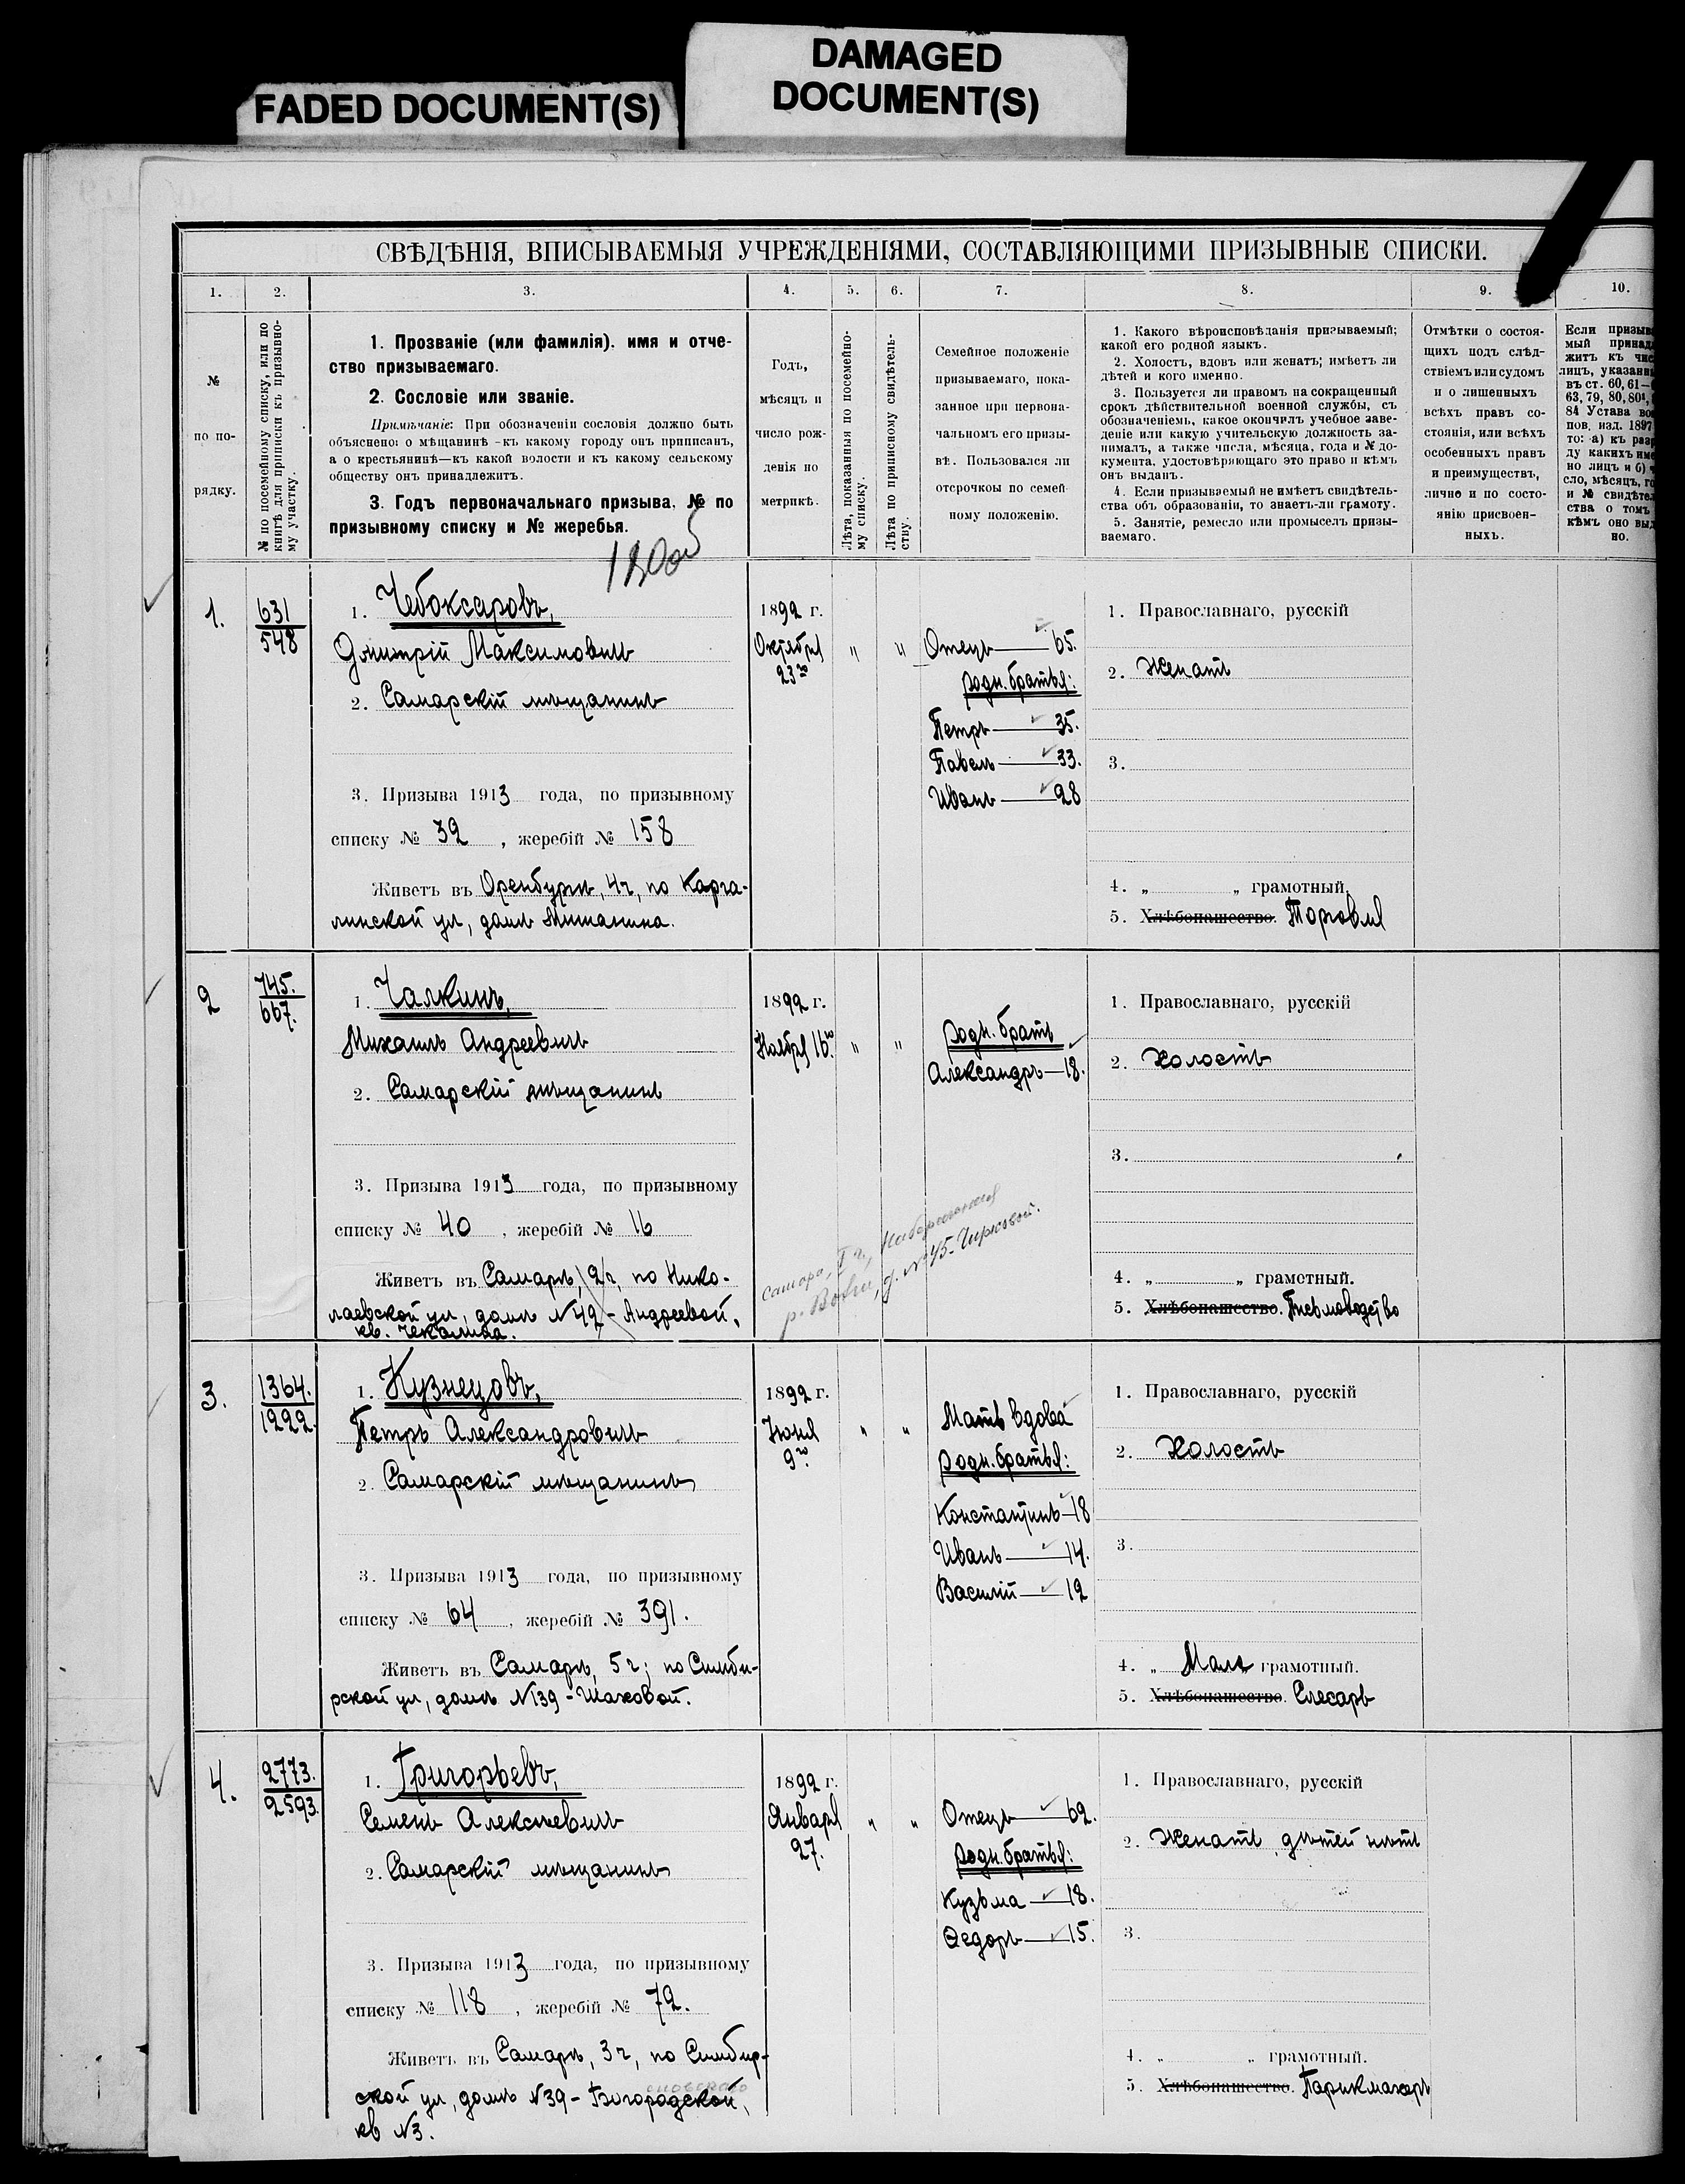 FADED DOCUMENT(S)
DAMAGED
DOCUMENT(S)
СВѢДѢНІЯ, ВПИСЫВАЕМЫЯ УЧРЕЖДЕНІЯМИ, СОСТАВЛЯЮЩИМИ ПРИЗЫВНЫЕ СПИСКИ.
1. 2. 3. 4. 5. 6. 7. 8. 9. 10.
№
по по-
рядку.
№ по посемейному списку, или по
книгѣ для приписки къ призывно-
му участку.
1. Прозваніе (или фамилія), имя и отче-
ство призываемаго.
2. Сословіе или званіе.
Примѣчаніе: При обозначеніи сословія должно быть
объяснено: о мѣщанинѣ - къ какому городу онъ приписанъ,
а о крестьянинѣ—къ какой волости и къ какому сельскому
обществу онъ принадлежитъ.
3. Годъ первоначальнаго призыва, № по
призывному списку и № жеребья.
Годъ,
мѣсяцъ и
число рож-
денія по
метрикѣ.
Лѣта, показанныя по посемейно-
му списку.
Лѣта по приписному свидѣтель-
ству.
Семейное положеніе
призываемаго, пока-
занное при первона-
чальномъ его призы-
вѣ. Пользовался ли
отсрочкою по семей-
ному положенію.
1. Какого вѣроисповѣданія призываемый;
какой его родной языкъ.
2. Холостъ, вдовъ или женатъ; имѣетъ ли
дѣтей и кого именно.
3. Пользуется ли правомъ на сокращенный
срокъ дѣйствительной военной службы, съ
обозначеніемъ, какое окончилъ учебное заве-
деніе или какую учительскую должность за-
нималъ, а также числа, мѣсяца, года и № до-
кумента, удостовѣряющаго это право и кѣмъ
онъ выданъ.
4. Если призываемый не имѣетъ свидѣтель-
ства объ образованіи, то знаетъ-ли грамоту.
5. Занятіе, ремесло или промыселъ призы-
ваемаго.
Отмѣтки о состоя-
щихъ подъ слѣд-
ствіемъ или судомъ
и о лишенныхъ
всѣхъ правъ со-
стоянія, или всѣхъ
особенныхъ правъ
и преимуществъ,
лично и по состо-
янію присвоен-
ныхъ.
Если призыв
мый принад
житъ къ чис
лицъ, указанн
въ ст. 60, 61—
63, 79, 80, 80¹,
84 Устава во
пов. изд. 1897
то: а) къ разр
ду какихъ име
но лицъ и б)
сло, мѣсяцъ, го
и № свидѣтел
ства о томъ
кѣмъ оно выд
но.
1.
631
548
1. Чебоксаровъ,
Дмитрій Максимовичъ
2. Самарскій мѣщанинъ
3. Призыва 1913 года, по призывному
списку № 32, жеребій № 158
Живетъ въ Оренбургѣ, 4 ч, по Карга-
линской ул, домъ Мишанина.
1892 г.
Октября
23го
" "
Отецъ — 65.
родн. братья:
Петръ — 35.
Павелъ — 33.
Иванъ — 28
1. Православнаго, русскій
2. Женатъ
3.
4. „ „ грамотный.
5. Хлѣбопашество. Торговля
2
745.
667.
1. Чалкинъ,
Михаилъ Андреевичъ
2. Самарскій мѣщанинъ
3. Призыва 1913 года, по призывному
списку № 40, жеребій № 16
Живетъ въ Самарѣ, 2 ч, по Нико-
лаевской ул, домъ №49 - Андреевой,
кв. Чекалина.
1892 г.
Ноября 16го
" "
родн. братъ
Александръ — 18.
самара, I ч, Набережная
р. Волги, д. №45 - Чирковой.
1. Православнаго, русскій
2. Холостъ
3.
4. „ „ грамотный.
5. Хлѣбопашество. Письмоводство
3.
1364.
1222.
1. Кузнецовъ,
Петръ Александровичъ
2. Самарскій мѣщанинъ
3. Призыва 1913 года, по призывному
списку № 64, жеребій № 391.
Живетъ въ Самарѣ, 5 ч; по Симби-
рской ул, домъ №139 - Шаховой.
1892 г.
Іюня
9го
" "
Мать вдова
родн. братья:
Константинъ — 18
Иванъ — 14.
Василій — 12
1. Православнаго, русскій
2. Холостъ
3.
4. „ Мало грамотный.
5. Хлѣбопашество. Слесарь
4.
2773.
2593.
1. Григорьевъ,
Семенъ Алексѣевичъ
2. Самарскій мѣщанинъ
3. Призыва 1913 года, по призывному
списку № 118, жеребій № 72.
Живетъ въ Самарѣ, 3 ч, по Симбир-
ской ул, домъ №39 - Богородской,
кв №3.
1892 г.
Января
27.
" "
Отецъ — 62.
родн. братья:
Кузьма — 18.
Ѳедоръ — 15.
1. Православнаго, русскій
2. Женатъ, дѣтей нѣтъ
3.
4. „ „ грамотный.
5. Хлѣбопашество. Парикмахеръ